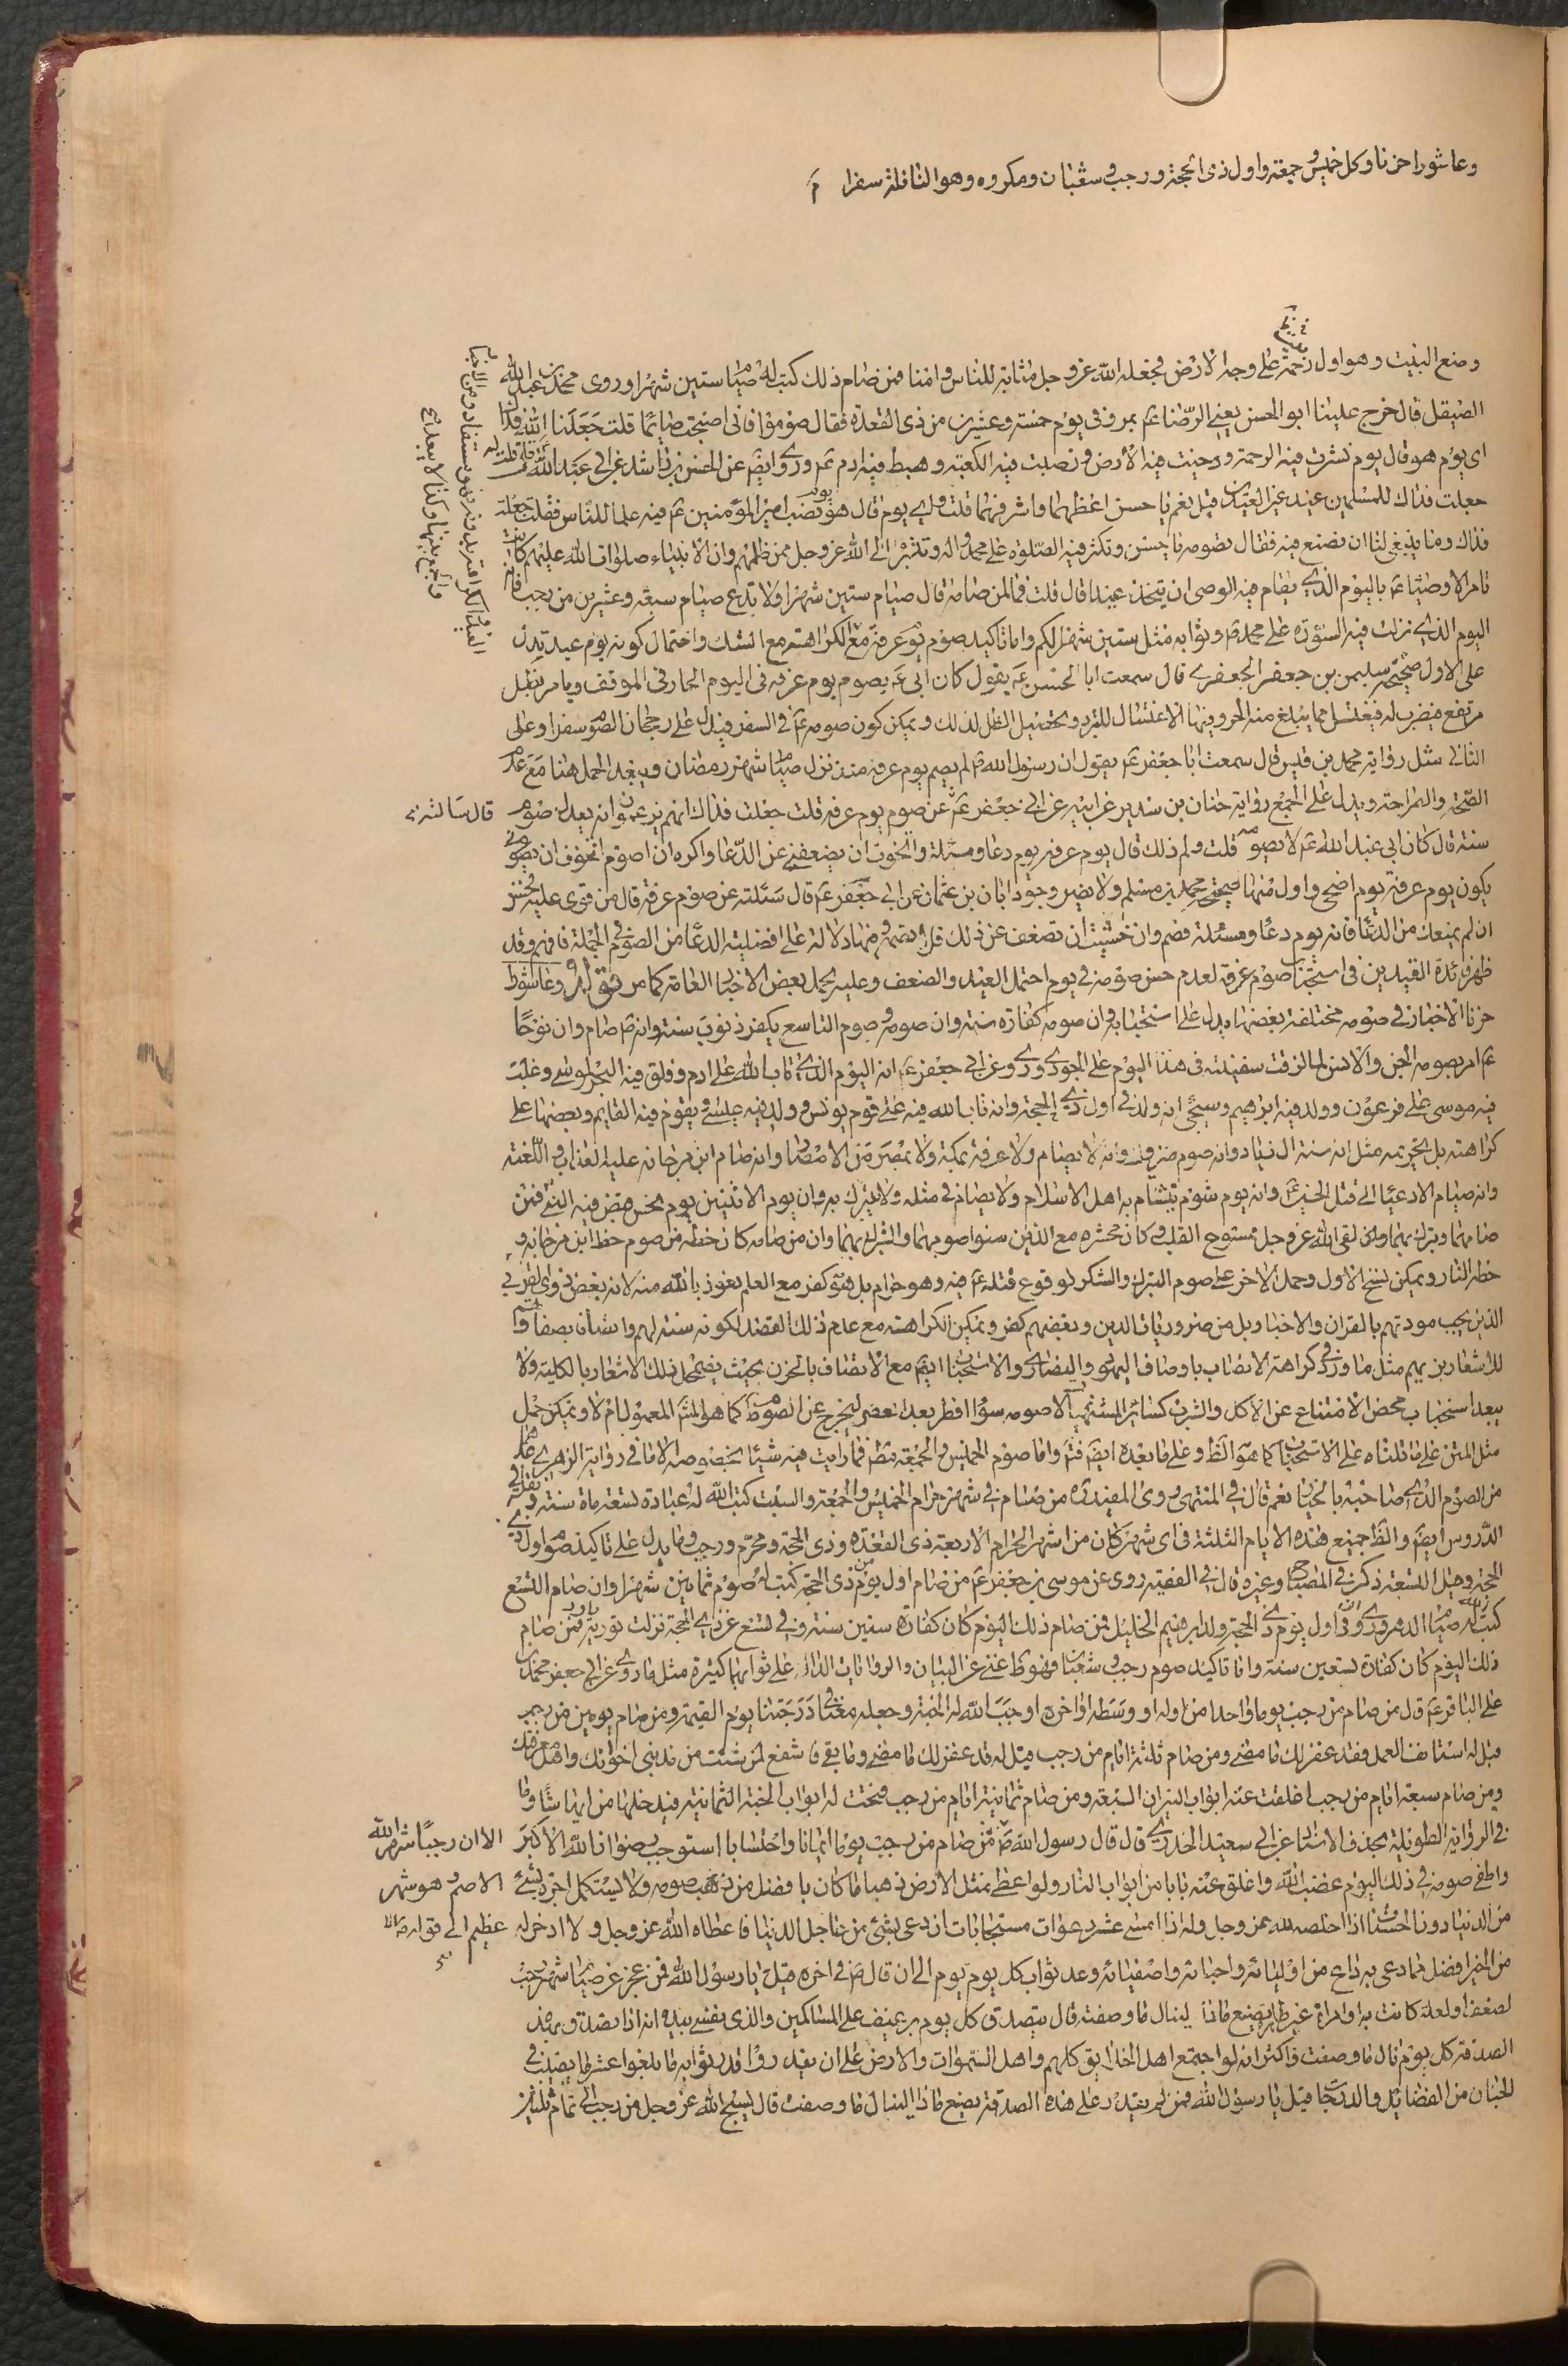 وعاشورا حزنا وكل خميس وجمعة واول ذى الحجة ورجب وشعبان ومكروه وهو النافلة سفرا
وضع البيت وهو اول رحمة على وجه الارض فجعله الله عز وجل مثابة للناس وامنا فمن صام ذلك كتب له صيام ستين شهرا وروى محمد بن عبد الله
الصيقل قال خرج علينا ابو الحسن يعنى الرضا ع بمرو فى يوم خمسة وعشرين من ذى القعدة فقال صوموا فانى اصبحت صائما قلت جعلنا الله فداك
اى يوم هو قال يوم نشرت فيه الرحمة ودحيت فيه الارض ونصبت فيه الكعبة وهبط فيه ادم ع وروى ايض عن الحسن بن راشد عن ابى عبد الله ع قال قلت له
جعلت فداك للمسلمين عيد غير العيدين قيل نعم يا حسن اعظمهما واشرفهما قلت واى يوم قال هو يوم نصب امير المؤمنين ع فيه علما للناس فقلت جعلت
فداك وما ينبغى لنا ان نصنع فيه فقال تصومه يا حسن وتكثر فيه الصلوة على محمد واله وتتبرأ الى الله عز وجل ممن ظلمهم وان الانبياء صلوات الله عليهم كانت
تامر الاوصياء ع باليوم الذى يقام فيه الوصى ان يتخذ عيدا قال قلت فما لمن صامه قال صيام ستين شهرا ولا تدع صيام سبعة وعشرين من رجب فانه
اليوم الذى نزلت فيه النبوة على محمد ص وثوابه مثل ستين شهرا لكم واما تاكيد صوم يوم عرفة مع الكراهة مع الشك واحتمال كونه يوم عيد تدل
على الاول صحيحة سليمن بن جعفر الجعفرى قال سمعت ابا الحسن ع يقول كان ابى ع يصوم يوم عرفة فى اليوم الحار فى الموقف ويامر بظل
مرتفع فيضرب له فيغتسل مما يبلغ منه الحر وفيها الاغتسال للتبرد وتحصيل الظل لذلك ويمكن كون صومه ع فى السفر فيدل على رجحان الصوم سفرا وعلى
الثانى مثل رواية محمد بن قيس قال سمعت ابا جعفر ع يقول ان رسول الله ص لم يصم يوم عرفة منذ نزل صيام شهر رمضان ويبعد الحمل هنا مع عدم
الصحة والصراحة ويدل على الجمع رواية حنان بن سدير عن ابيه عن ابى جعفر ع عن صوم يوم عرفة قلت جعلت فداك انهم يزعمون انه يعدل صوم
قال سألته
سنة قال كان ابى عبد الله ع لا يصومه قلت ولم ذلك قال يوم عرفة يوم دعا ومسئلة واتخوف ان يضعفنى عن الدعا واكره ان اصومه اتخوف ان
يكون يوم عرفة يوم اضحى واول منها صحيحة محمد بن مسلم ولا يضر وجود ابان بن عثمان عن ابى جعفر ع قال سئلته عن صوم عرفة قال من قوى عليه فحسن
ان لم يمنعك من الدعا فانه يوم دعا ومسئلة فصم وان خشيت ان تضعف عن ذلك فلا تصمه ومنها دلالة على افضلية الدعا من الصوم فى الجملة فافهم وقد
ظهر فائدة القيدين فى استحباب صوم عرفة لعدم حسن صومه فى يوم احتمل العيد والضعف وعليه يحمل بعض الاخبار العامة كما مر
حزنا الاخبار فى صومه مختلفة بعضها يدل على استحبابه وان صومه كفارة سنة وان صومه وصوم التاسع يكفر ذنوب سنة وانه ص صام وان نوحا
ع امر بصومه الجن والانس لما لزقت سفينته فى هذا اليوم على الجودى وروى عن ابى جعفر ع انه اليوم الذى تاب الله على ادم وفلق فيه البحر لموسى وغلب
فيه موسى على فرعون وولد فيه ابرهيم وسيجئ انه ولد فى اول ذى الحجة وانه تاب الله فيه على قوم يونس وولد فيه عيسى ويقوم فيه القايم وبعضها على
كراهته بل تحريمه مثل انه سنة ال زياد وانه صوم متروك وانه لا يصام ولا عرفة بمكة ولا بمصر من الامصار وانه صام ابن مرجانه عليه العذاب واللعنة
وانه صيام الادعيا الى قتل الحسين ع وانه يوم شوم يتشام به اهل الاسلام ولا يصام فى مثله ولا يتبرك به وان يوم الاثنين يوم نحس قبض فيه النبى فمن
صامهما وتبرك بهما ولقى الله عز وجل ممسوخ القلب وكان محشره مع الذين سنوا صومهما والتبرك بهما وان من صامه كان حظه من صوم حظ ابن مرجانه و
حظه النار ويمكن نسخ الاول وحمل الاخر على صوم التبرك والشكر لوقوع قتله ع فيه وهو حرام بل هو كفر مع العلم نعوذ بالله منه لانه بغض ذوى القربى
الذين يجب مودتهم بالقران والاخبار وبل من ضروريات الدين وبغضهم كفر ويمكن الكراهة مع عدم ذلك القصد لكونه سنة لهم
للاشعار بزيهم مثل ما ورد فى كراهة الاتصاف باوصاف اليهود والنصارى والاستحباب ايض مع الاتصاف بالحزن بحيث يضمحل ذلك الاشعار بالكلية ولا
يبعد استحباب محض الامتناع عن الاكل والشرب كسائر المشتهيات الا صومه سؤا افطر بعد العصر ليخرج عن الصوم كما هو المعمول ام لا ويمكن حمل
مثل المتن على ما قلناه على الاستحباب كما هو الظ وعلى ما بعده ايض فتم واما صوم الخميس والجمعة فما رايت فيه شيئا بخصوصه الا ما فى رواية الزهرى
من الصوم الذى صاحبه بالخيار نعم قال فى المنتهى روى المفيد ره من صام فى شهر حرام الخميس والجمعة والسبت كتب الله له عبادة تسعمائة سنة
الدروس ايض والظ جميع هذه الايام الثلثة فى اى شهر كان من اشهر الحرام الاربعة ذى القعدة وذى الحجة ومحرم ورجب وما يدل على تاكيد صوم اول ذى
الحجة وقيل التسعة ذكره فى المصباح وغيره قال فى الفقيه روى عن موسى بن جعفر ع من صام اول يوم من ذى الحجة كتب له صوم ثمانين شهرا وان صام التسع
كتب الله له صيام الدهر وروى ان اول يوم ذى الحجة ولد ابرهيم الخليل فمن صام ذلك اليوم كان كفارة ستين سنة وفى تسع عن ذى الحجة نزلت توبة داود فمن صام
ذلك اليوم كان كفارة تسعين سنة واما تاكيد صوم رجب وشعبان فهو ظ غنى عن البيان والروايات الدالة على ثوابهما كثيرة مثل ما روى عن ابى جعفر محمد بن
على الباقر ع قال من صام من رجب يوما واحدا من اوله او وسطه او اخره اوجب الله له الجنة وجعله معنا فى درجتنا يوم القيمة ومن صام يومين من رجب
قيل له استانف العمل فقد غفر لك ما مضى ومن صام ثلثة ايام من رجب قيل له قد غفر لك ما مضى وما بقى فاشفع لمن شئت من مذنبى اخوانك واهل معرفتك
ومن صام سبعة ايام من رجب اغلقت عنه ابواب النيران السبعة ومن صام ثمانية ايام من رجب فتحت له ابواب الجنة الثمانية فيدخلها من ايها شاء وما
فى الرواية الطويلة بحذف الاسناد عن ابى سعيد الخدرى قال قال رسول الله ص من صام من رجب يوما ايمانا واحتسابا استوجب رضوان الله الاكبر
الا ان رجبا شهر الله
واطفى صومه فى ذلك اليوم غضب الله واغلق عنه بابا من ابواب النار ولو اعطى مثل الارض ذهبا ما كان بافضل من صومه ولا يستكمل اجره بشئ
الاصم وهو شهر
من الدنيا دون الحسنات اذا اخلصه لله عز وجل وله اذا امسى عشر دعوات مستجابات ان دعى بشئ من عاجل الدنيا فاعطاه الله عز وجل ولا ادخر له
عظيم الى قوله
من الخير افضل مما دعى به داع من اوليائه واحبائه واصفيائه وعد ثواب كل يوم يوم الى ان قال ص فى اخره قيل يا رسول الله فمن عجز عن صيام شهر رجب
لضعف او لعلة كانت به او امراة غير طاهرة يصنع ماذا لينال ما وصفت قال يتصدق كل يوم برغيف على المساكين والذى نفسى بيده انه اذا تصدق بهذه
الصدقة كل يوم نال ما وصفت واكثر انه لو اجتمع اهل الخلايق كلهم واهل السموات والارض على ان يقدروا قدر ثوابه ما بلغوا عشر ما يصيب فى
الجنان من الفضائل والدرجات قيل يا رسول الله فمن لم يقدر على هذه الصدقة يصنع ماذا لينال ما وصفت قال يسبح الله عز وجل من رجب الى تمام ثلثين